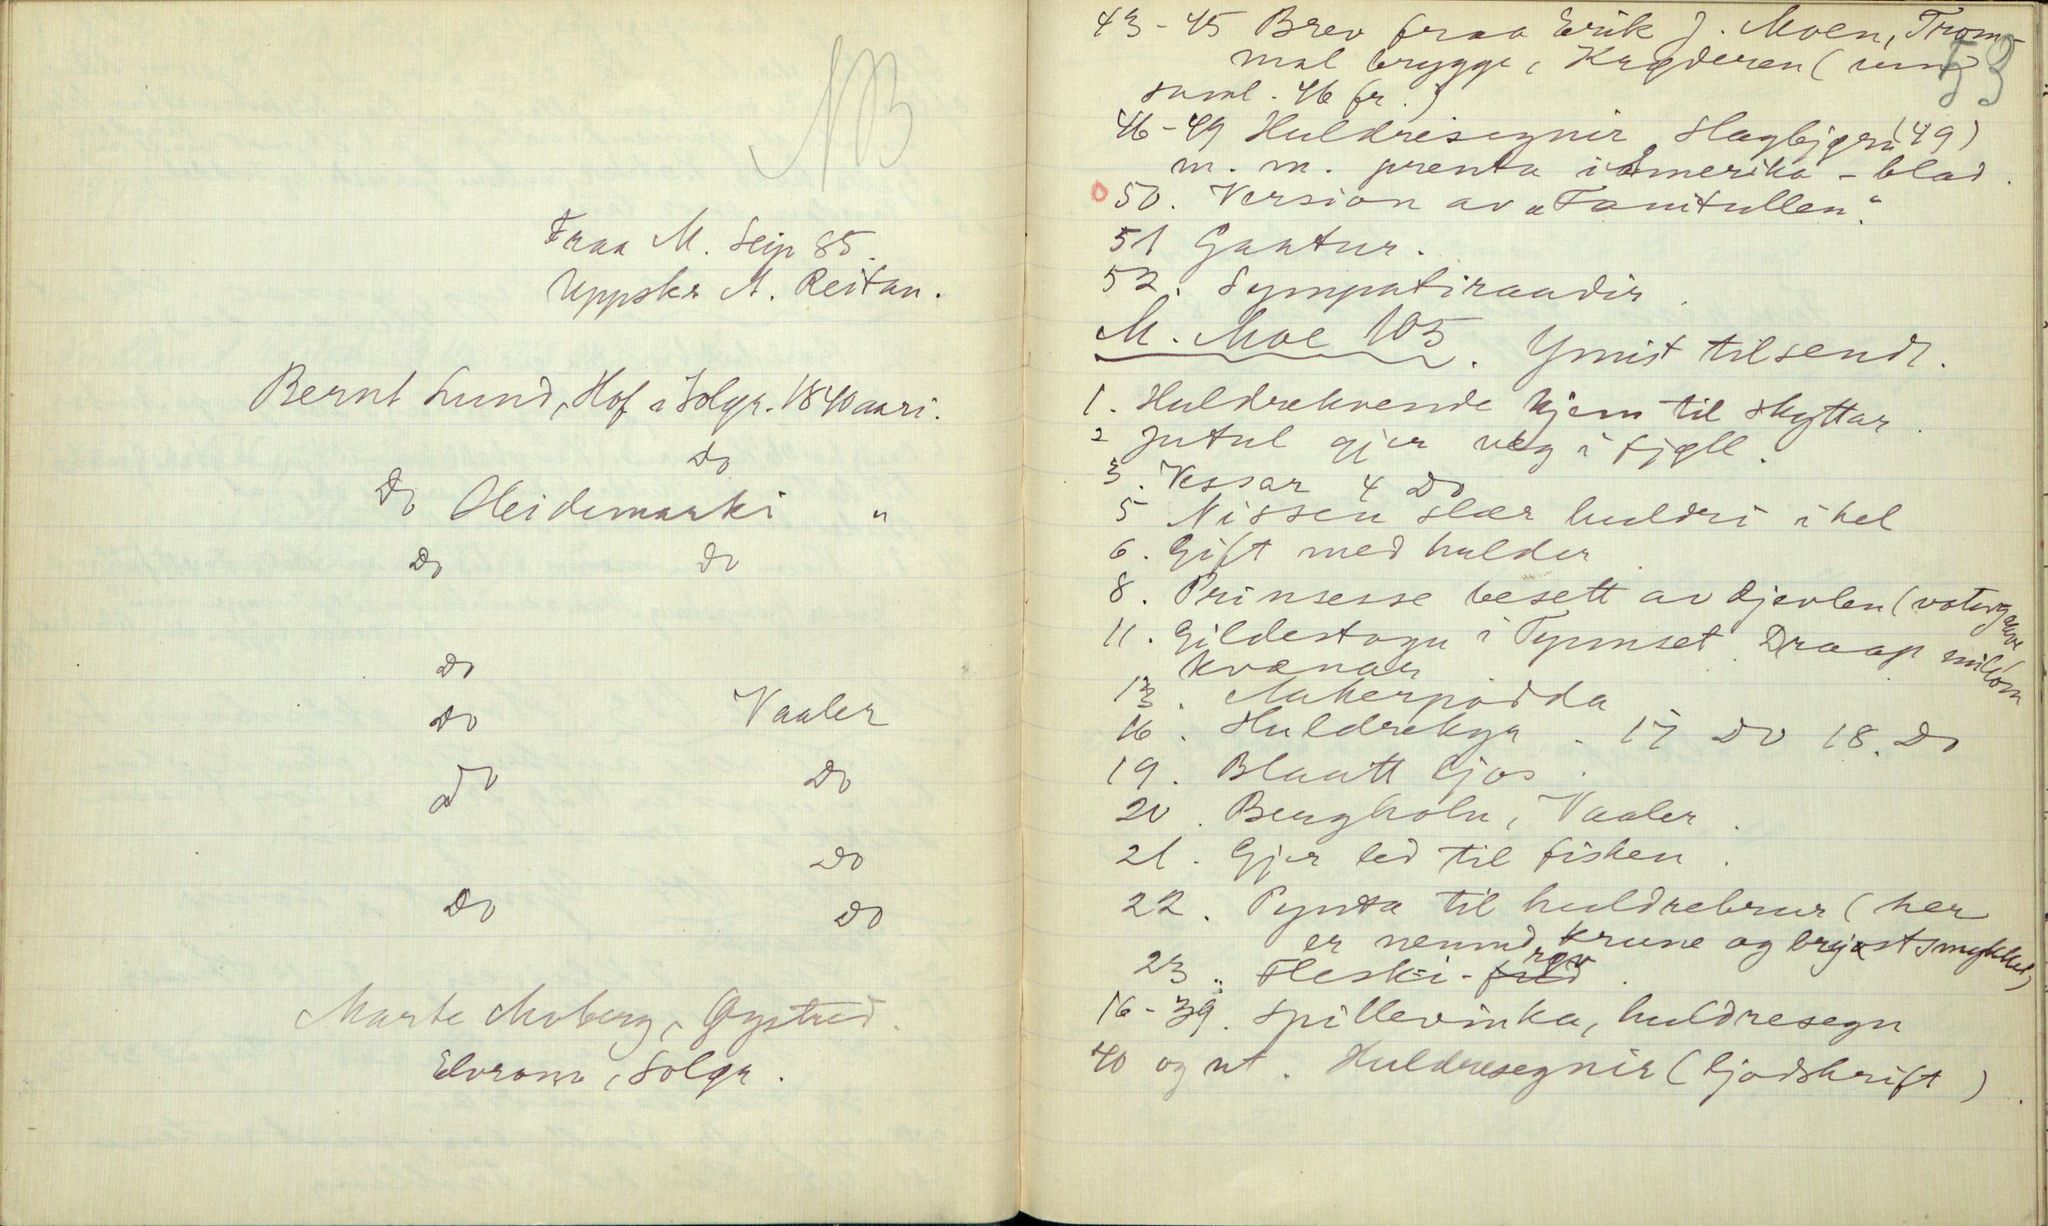 NB
Fraa M. Seip 85.
Uppskr A. Reitan.
Bernt Lund, Hof i Solør. 1840aari.
Do
Do Heidemarki "
Do Do
Do
Do Vaaler
Do Do
Do
Do Do
Marte Moberg, Øystred.
Elvrom, Solør.
53
43-45 Brev fraa Erik J. Moen, Trom-
mal brygge, Krøderen (
saml. 46 fr.)
46-49 Huldresegnir, Hagbjør (49)
m. m. prenta i Amerika-blad.
50. Version av "Fanitullen".
51 Gaatur.
52. Sympatiraadir.
M. Moe 105. Ymist tilsendt.
1. Huldrekvende kjem til skyttar.
2 Jutul gjer veg i fjøll.
3. Vessar 4 Do
5 Nissen slær huldri ihel
6. Gift med hulder
8. Prinsesse besett av djevlen (
11. Gildestogu i Tymset. Draap millom
kvænar
13. Aakerpadda
16. Huldrekyr. 17 Do 18. Do
19. Blaatt ljos.
20. Bergholn, Vaaler.
21. Gjer led til fisken.
22. Pynta til huldrebrur (her
er nemnd krune og brystsmykke)
23. Fleski-fild røv.
16-39. Spillevinka, huldresegn
40 og ut. Huldresegnir (ljodskrift).